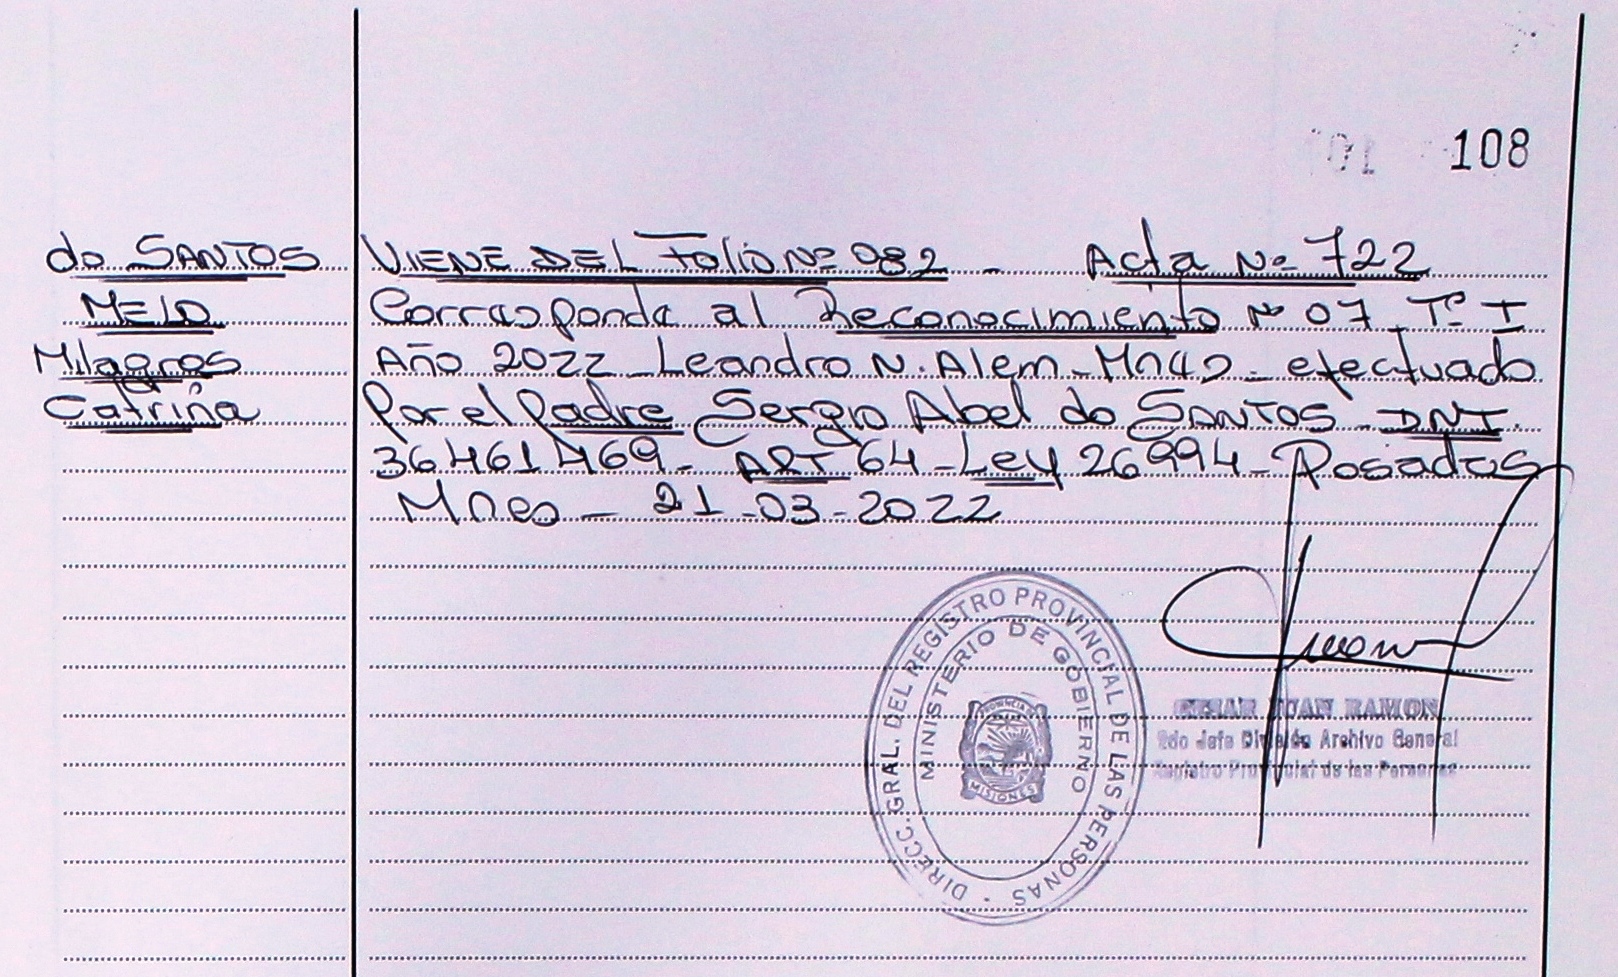 108
do SANTOS
MELO
Milagros
Catriña
VIENE DEL Folio Nº 082 - Acta Nº 722
Corresponde al Reconocimiento Nº 07 Tº I
Año 2022 - Leandro N. Alem - Mnes - efectuado
Por el Padre Sergio Abel do SANTOS - DNI.
36461469 - ART 64 - Ley 26994 - Posadas
Mnes - 21-03-2022
DIRECC. GRAL. DEL REGISTRO PROVINCIAL DE LAS PERSONAS
MINISTERIO DE GOBIERNO
PROVINCIA DE
MISIONES
JUAN RAMON
2do Jefe División Archivo General
Registro Provincial de las Personas